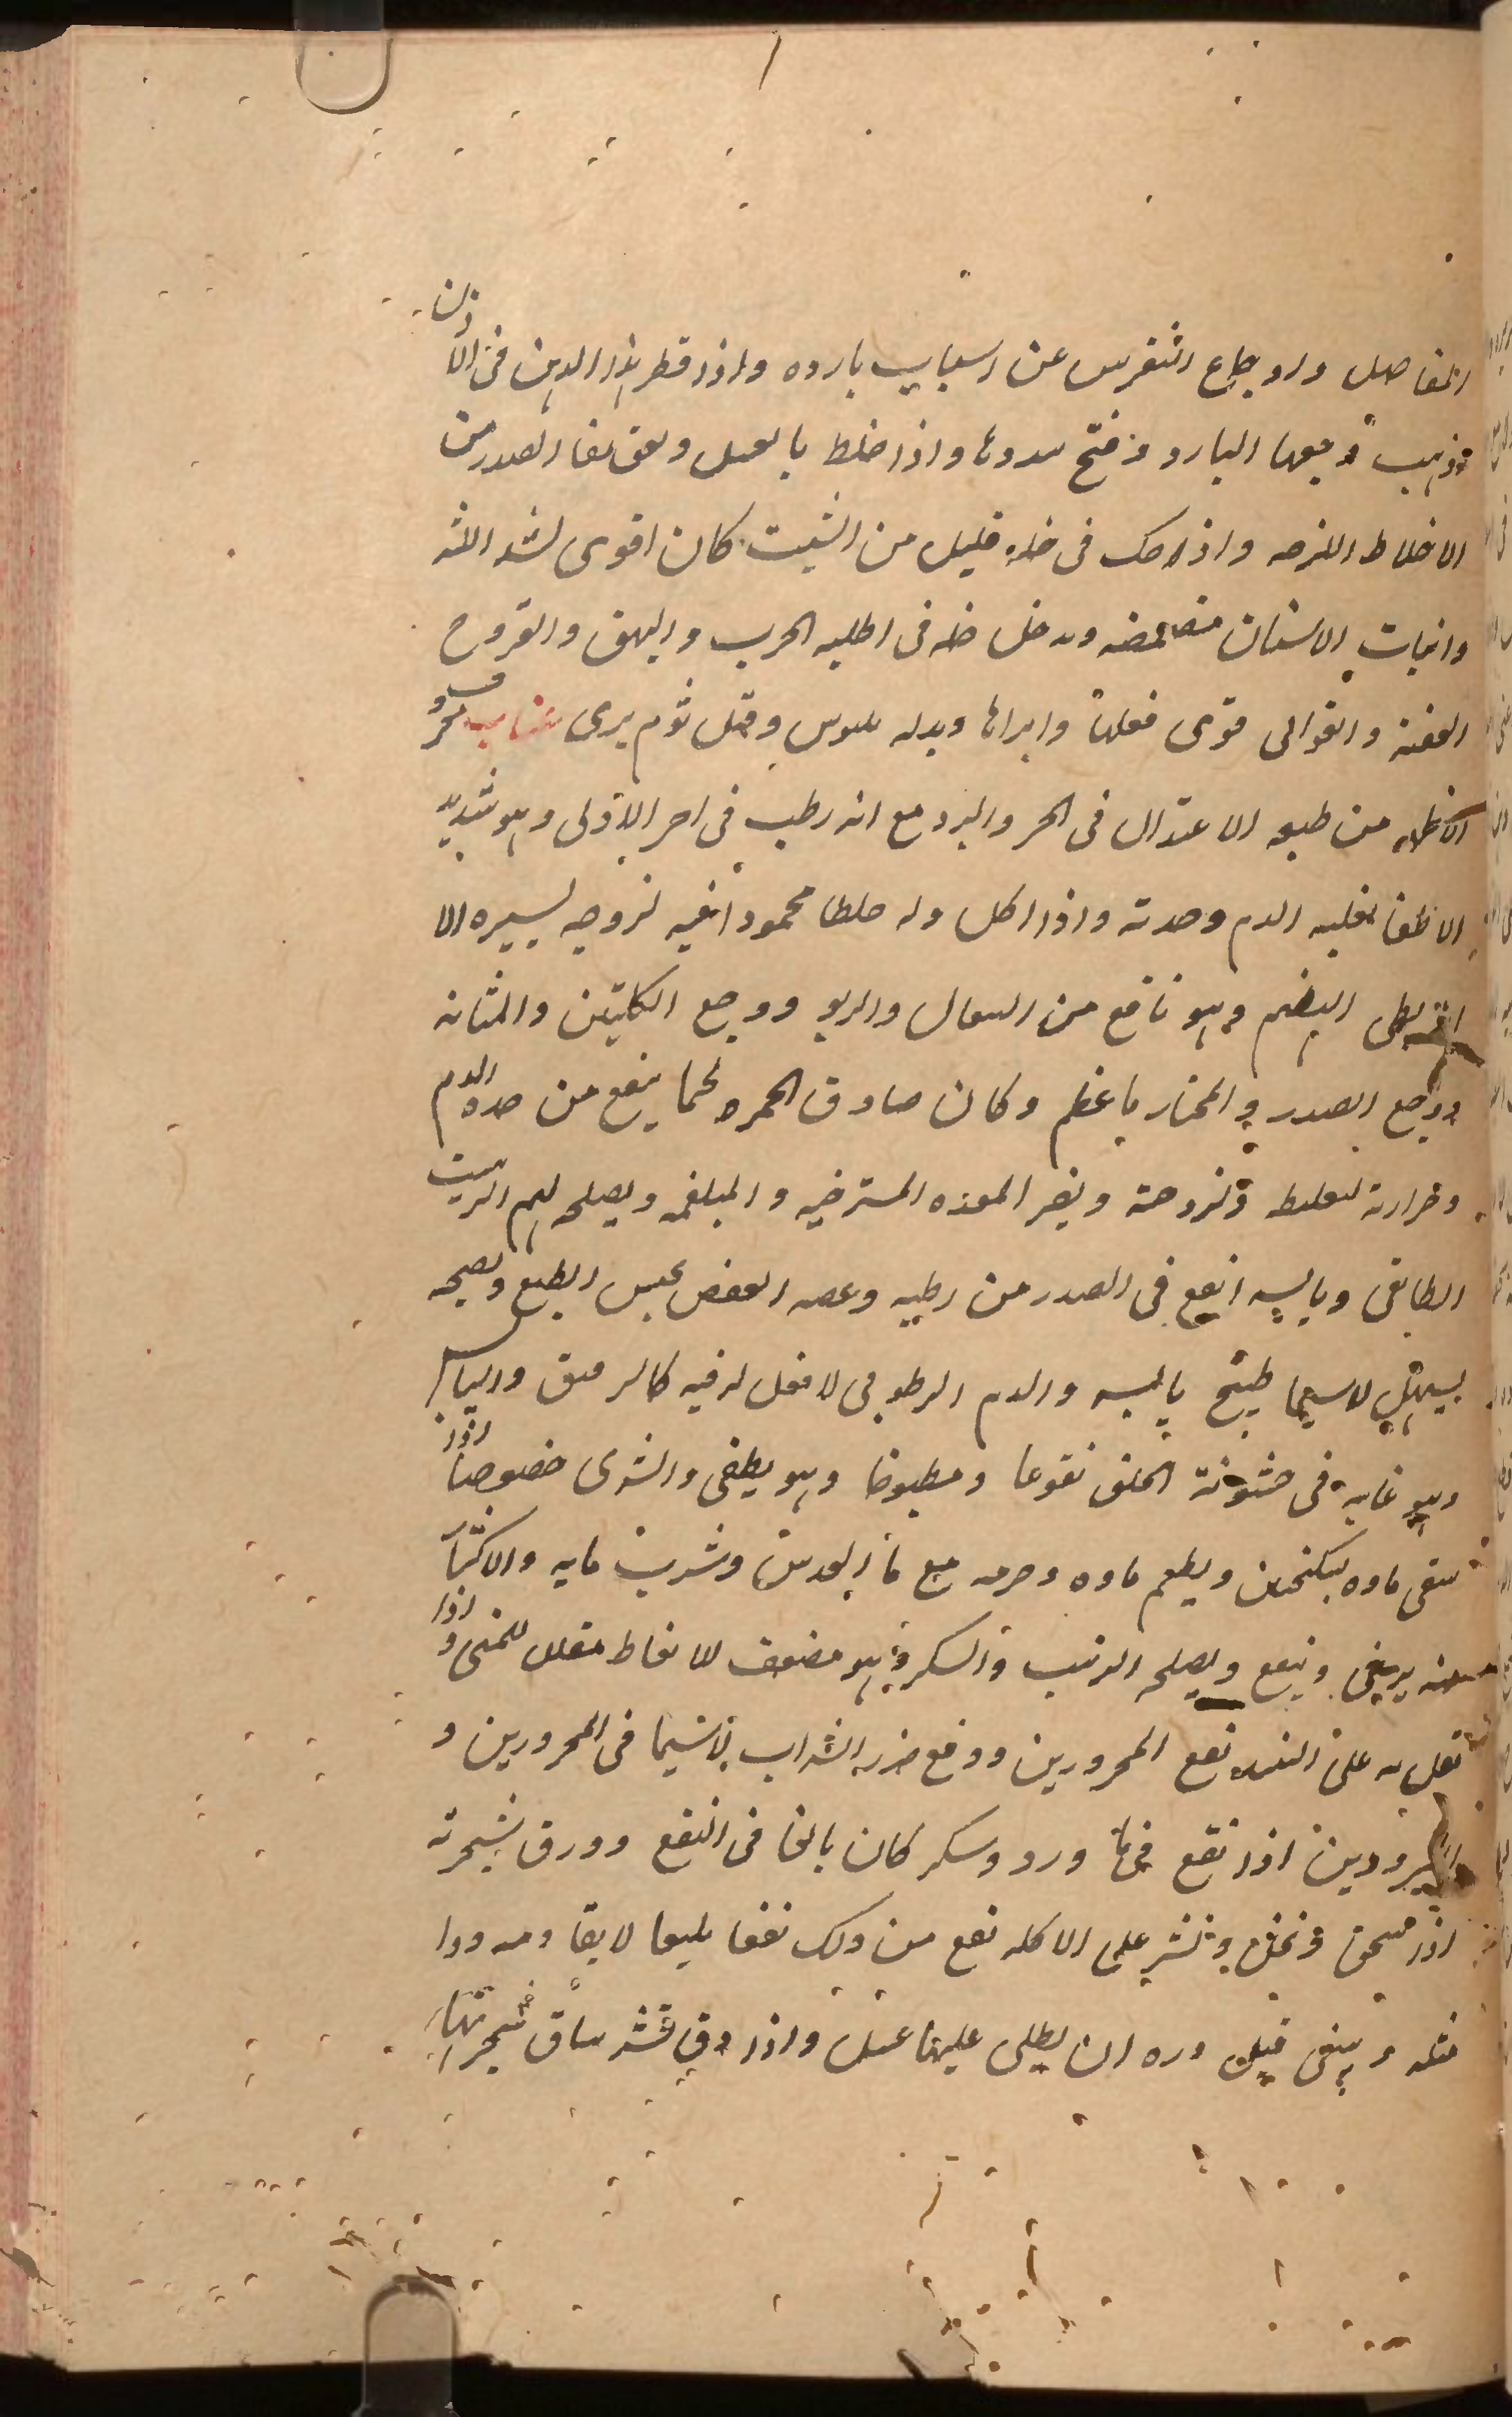 المفاصل واوجاع النقرس عن اسباب بارده واذا قطر هذا الدهن فى الاذن
فذهب وجعها البارد وفتح سددها واذا خلط بالعسل ولعق نقا الصدر من
الاخلاط اللزجه واذا حك فى خله قليل من الشبت كان اقوى لشد اللثه
وانبات الاسنان مضمضه ويدخل خله فى اطليه الجرب والبهق والقروح
العفنة والقوابى قوى فعلها وابراها وبدله بلبوس وقيل ثوم برى عناب معروف
الاظهر من طبعه الاعتدال فى الحر والبرد مع انه رطب فى اخر الاولى وهو شديد
الاطفا لغلبه الدم وحدته واذا اكل ولد خلطا محمودا فيه لزوجه يسيره الا
انه بطى الهضم وهو نافع من السعال والربو ووجع الكليتين والمثانه
ووجع الصدر والمختار ما عظم وكان صادق الحمره لحما ينفع من حده الدم
وحرارته لتغليظه ولزوجته ويضر المعده المسترخيه والبلغميه ويصلحه لهم الزبيب
الطايفى ويابسه انفع فى الصدر من رطبه وغصه العفص يحبس الطبع ونصيجه
يسهل لاسيما طبيخ يابسه والدم الرطوبى لا فعل له فيه كالرقيق واليابس
وهو غايه فى خشونة الحلق نقوعا ومطبوخا وهو يطفى والشرى خصوصا اذا
سقى ماوه بسكنجبين ويطعم ماوه وجرمه مع ما العدس وشرب مايه والاكثار
منه يرخى وينفع ويصلحه الزبيب والسكر وهو مضعف للانعاظ مقلل للمنى واذا
تنقل به على النبيذ نفع المحرورين ودفع ضرر الشراب لاسيما فى المحرورين و
المبرودين اذا نقع فى ما ورد وسكر كان بالغا فى النفع وورق شجرته
اذا سحق ونخل ونثر على الاكله نفع من ذلك نفعا بليغا لا يقاومه دوا
مثله وينبغى قبل ذره ان يطلى عليها عسل واذا دق قشر ساق شجرتها